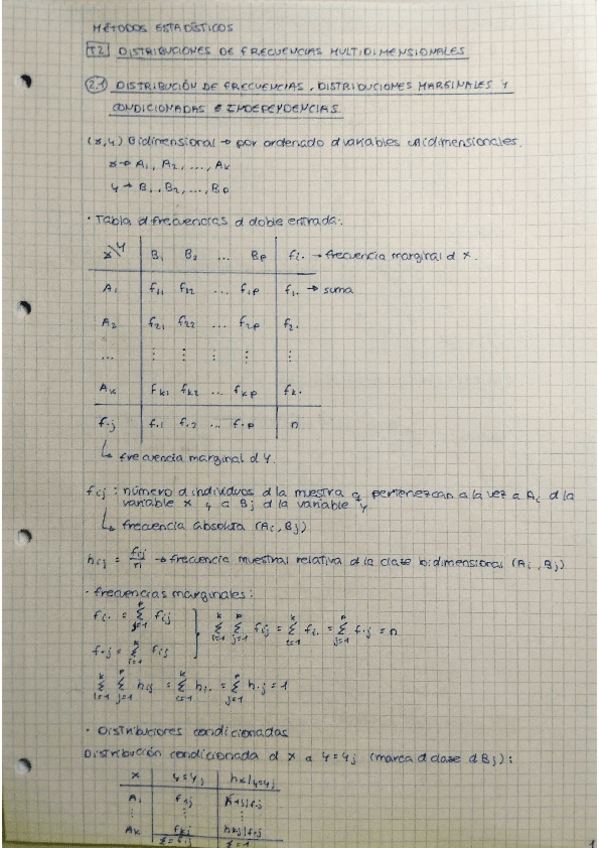 MÉTODOS ESTADÍSTICOS
T2 DISTRIBUCIONES DE FRECUENCIAS MULTIDIMENSIONALES
2.1 DISTRIBUCIÓN DE FRECUENCIAS, DISTRIBUCIONES MARGINALES Y
CONDICIONADAS E INDEPENDENCIAS.
(x,y) Bidimensional → par ordenado d variables unidimensionales.
x → A₁, A₂, ..., Aₖ
y → B₁, B₂, ..., Bₚ
· Tabla d frecuencias d doble entrada:
x\y B₁ B₂ ... Bₚ fᵢ. → frecuencia marginal d x.
A₁ f₁₁ f₁₂ ... f₁ₚ f₁. → suma
A₂ f₂₁ f₂₂ ... f₂ₚ f₂.
... ⋮ ⋮ ⋮ ⋮ ⋮
Aₖ fₖ₁ fₖ₂ ... fₖₚ fₖ.
f.j f.₁ f.₂ ... f.ₚ n
↳ frecuencia marginal d y.
fij : número d individuos d la muestra q pertenezcan a la vez a Ai d la
variable x y a Bj d la variable y
↳ frecuencia absoluta (Ai, Bj)
hij = fij/n → frecuencia muestral relativa d la clase bidimensional (Ai, Bj)
· frecuencias marginales:
fi. = Σⱼ₌₁ᵖ fij
f.j = Σᵢ₌₁ᵏ fij } Σᵢ₌₁ᵏ Σⱼ₌₁ᵖ fij = Σᵢ₌₁ᵏ fi. = Σⱼ₌₁ᵖ f.j = n
Σᵢ₌₁ᵏ Σⱼ₌₁ᵖ hij = Σᵢ₌₁ᵏ hi. = Σⱼ₌₁ᵖ h.j = 1
· Distribuciones condicionadas
Distribución condicionada d x a y=yj (marca d clase d Bj):
x y=yj hx/y=yj
A₁ f₁j f₁j/f.j
⋮ ⋮ ⋮
Aₖ fkj fkj/f.j
Σ=f.j Σ=1
1